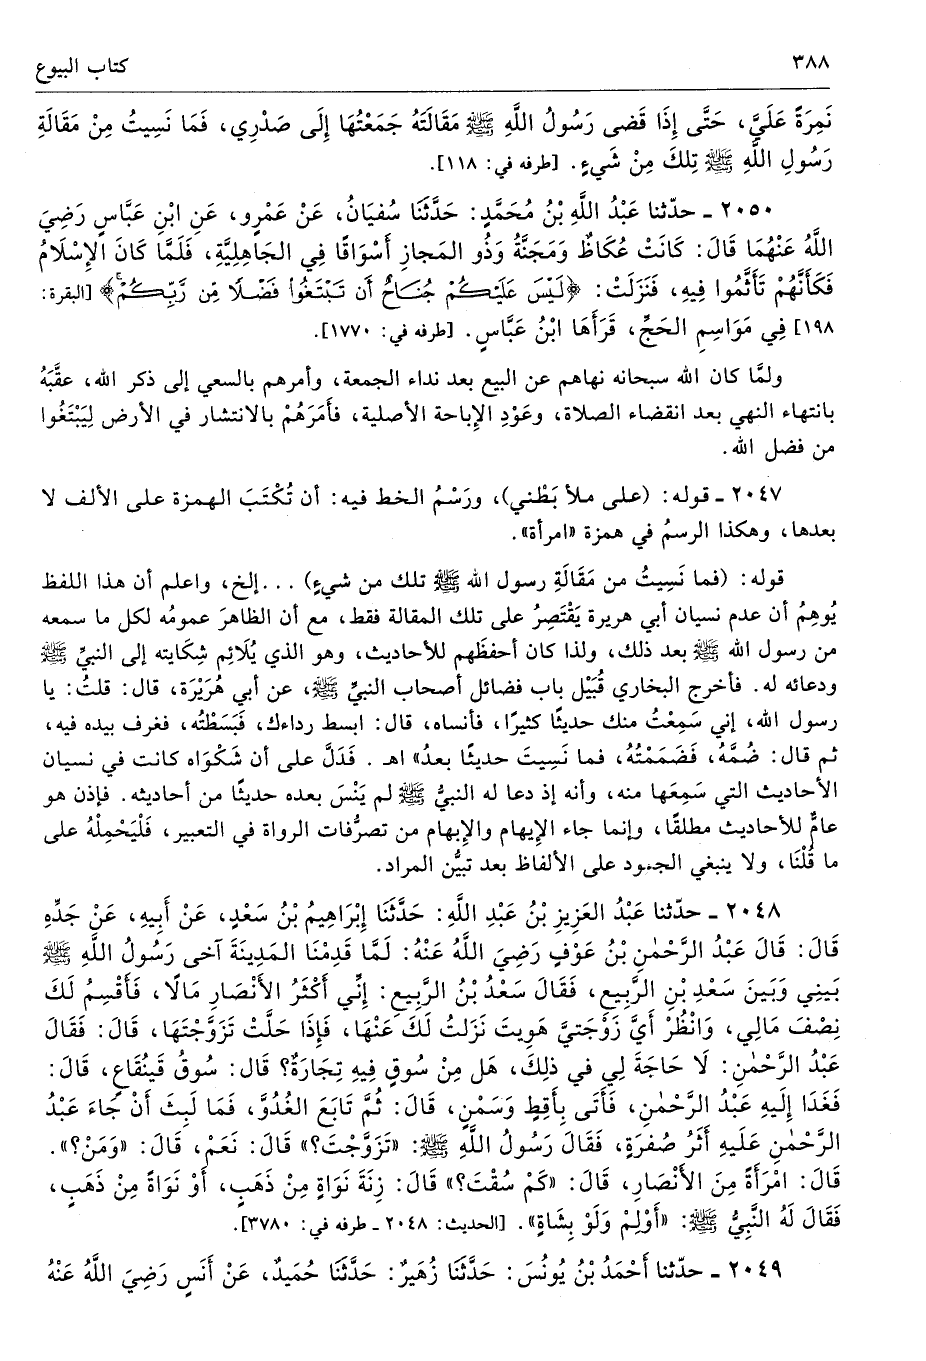 ٣٨٨
كتاب البيوع
نَمِرَةً عَلَيَّ، حَتَّى إِذَا قَضى رَسُولُ اللَّهِ ﷺ مَقَالَتَهُ جَمَعْتُهَا إِلَى صَدْرِي، فَمَا نَسِيتُ مِنْ مَقَالَةِ
رَسُولِ اللَّهِ ﷺ تِلكَ مِنْ شَيءٍ. [طرفه في: ١١٨].
٢٠٥٠ ـ حدّثنا عَبْدُ اللَّهِ بْنُ مُحَمَّدٍ: حَدَّثَنَا سُفيَانُ، عَنْ عَمْرٍو، عَنِ ابْنِ عَبَّاسٍ رَضِيَ
اللَّهُ عَنْهُمَا قَالَ: كَانَتْ عُكَاظٌ وَمَجَنَّةُ وَذُو المَجازِ أَسْوَاقًا فِي الجَاهِلِيَّةِ، فَلَمَّا كَانَ الإِسْلَامُ
فَكَأَنَّهُمْ تَأَثَّمُوا فِيهِ، فَنَزَلَتْ: ﴿لَيْسَ عَلَيْكُمْ جُنَاحٌ أَن تَبْتَغُوا۟ فَضْلًا مِّن رَّبِّكُمْ﴾ [البقرة:
١٩٨] فِي مَوَاسِمِ الحَجِّ، قَرَأَهَا ابْنُ عَبَّاسٍ. [طرفه في: ١٧٧٠].
ولمَّا كان الله سبحانه نهاهم عن البيع بعد نداء الجمعة، وأمرهم بالسعي إلى ذكر الله، عقَّبَهُ
بانتهاء النهي بعد انقضاء الصلاة، وعَوْدِ الإِباحة الأصلية، فأَمَرَهُمْ بالانتشار في الأرض لِيَبْتَغُوا
من فضل الله.
٢٠٤٧ ـ قوله: (على ملأ بَطْني)، ورَسْمُ الخط فيه: أن تُكْتَبَ الهمزة على الألف لا
بعدها، وهكذا الرسمُ في همزة «امرأة».
قوله: (فما نَسِيتُ من مَقَالَةِ رسول الله ﷺ تلك من شيءٍ) ...إلخ، واعلم أن هذا اللفظ
يُوهِمُ أن عدم نسيان أبي هريرة يَقْتَصِرُ على تلك المقالة فقط، مع أن الظاهرَ عمومُه لكل ما سمعه
من رسول الله ﷺ بعد ذلك، ولذا كان أحفظَهم للأحاديث، وهو الذي يُلَائِم شِكَايته إلى النبيِّ ﷺ
ودعائه له. فأخرج البخاري قُبَيْل باب فضائل أصحاب النبيِّ ﷺ، عن أبي هُرَيْرَة، قال: قلتُ: يا
رسول الله، إني سَمِعْتُ منك حديثًا كثيرًا، فأنساه، قال: ابسط رداءك، فَبَسَطْتُه، فغرف بيده فيه،
ثم قال: ضُمَّهُ، فَضَمَمْتُهُ، فما نَسِيتَ حديثًا بعدُ» اهـ. فَدَلَّ على أن شَكْوَاه كانت في نسيان
الأحاديث التي سَمِعَها منه، وأنه إذ دعا له النبيُّ ﷺ لم يَنْسَ بعده حديثًا من أحاديثه. فإذن هو
عامٌّ للأحاديث مطلقًا، وإنما جاء الإيهام والإبهام من تصرُّفات الرواة في التعبير، فَلْيَحْمِلْهُ على
ما قُلْنَا، ولا ينبغي الجمود على الألفاظ بعد تبيُّن المراد.
٢٠٤٨ ـ حدّثنا عَبْدُ العَزِيزِ بْنُ عَبْدِ اللَّهِ: حَدَّثَنَا إِبْرَاهِيمُ بْنُ سَعْدٍ، عَنْ أَبِيهِ، عَنْ جَدِّهِ
قَالَ: قَالَ عَبْدُ الرَّحْمٰنِ بْنُ عَوْفٍ رَضِيَ اللَّهُ عَنْهُ: لَمَّا قَدِمْنَا المَدِينَةَ آخى رَسُولُ اللَّهِ ﷺ
بَيْنِي وَبَينَ سَعْدِ بْنِ الرَّبِيعِ، فَقَالَ سَعْدُ بْنُ الرَّبِيعِ: إِنِّي أَكْثَرُ الأَنْصَارِ مَالًا، فَأَقْسِمُ لَكَ
نِصْفَ مَالِي، وَانْظُرْ أَيَّ زَوْجَتيَّ هَوِيتَ نَزَلتُ لَكَ عَنْهَا، فَإِذَا حَلَّتْ تَزَوَّجْتَهَا، قَالَ: فَقَالَ
عَبْدُ الرَّحْمٰنِ: لَا حَاجَةَ لِي في ذلِكَ، هَل مِنْ سُوقٍ فِيهِ تِجَارَةٌ؟ قَال: سُوقُ قَينُقَاعٍ، قَالَ:
فَغَدَا إِلَيهِ عَبْدُ الرَّحْمٰنِ، فَأَتَى بِأَقِطٍ وَسَمْنٍ، قَالَ: ثُمَّ تَابَعَ الغُدُوَّ، فَمَا لَبِثَ أَنْ جَاءَ عَبْدُ
الرَّحْمٰنِ عَلَيهِ أَثَرُ صُفرَةٍ، فَقَالَ رَسُولُ اللَّهِ ﷺ: «تَزَوَّجْتَ؟» قَالَ: نَعَمْ، قَالَ: «وَمَنْ؟».
قَالَ: امْرَأَةً مِنَ الأَنْصَارِ، قَالَ: «كَمْ سُقْتَ؟» قَالَ: زِنَةَ نَوَاةٍ مِنْ ذَهَبٍ، أَوْ نَوَاةً مِنْ ذَهَبٍ،
فَقَالَ لَهُ النَّبِيُّ ﷺ: «أَوْلِمْ وَلَوْ بِشَاةٍ». [الحديث: ٢٠٤٨ ـ طرفه في: ٣٧٨٠].
٢٠٤٩ ـ حدّثنا أَحْمَدُ بْنُ يُونُسَ: حَدَّثَنَا زُهَيرٌ: حَدَّثَنَا حُمَيدٌ، عَنْ أَنَسٍ رَضِيَ اللَّهُ عَنْهُ